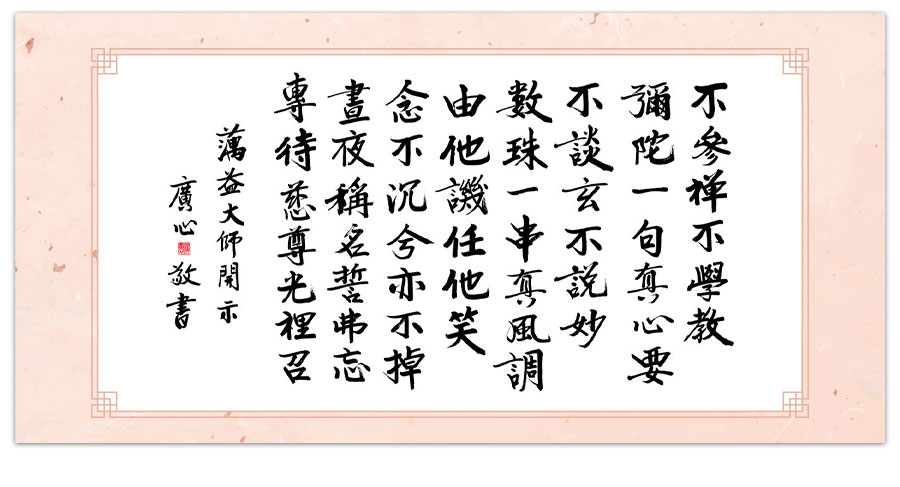 不參禅不學教
彌陀一句真心要
不談玄不説妙
數珠一串真風調
由他譏任他笑
念不沉兮亦不掉
晝夜稱名誓弗忘
專待慈尊光裡召
蕅益大师開示
廣心敬書